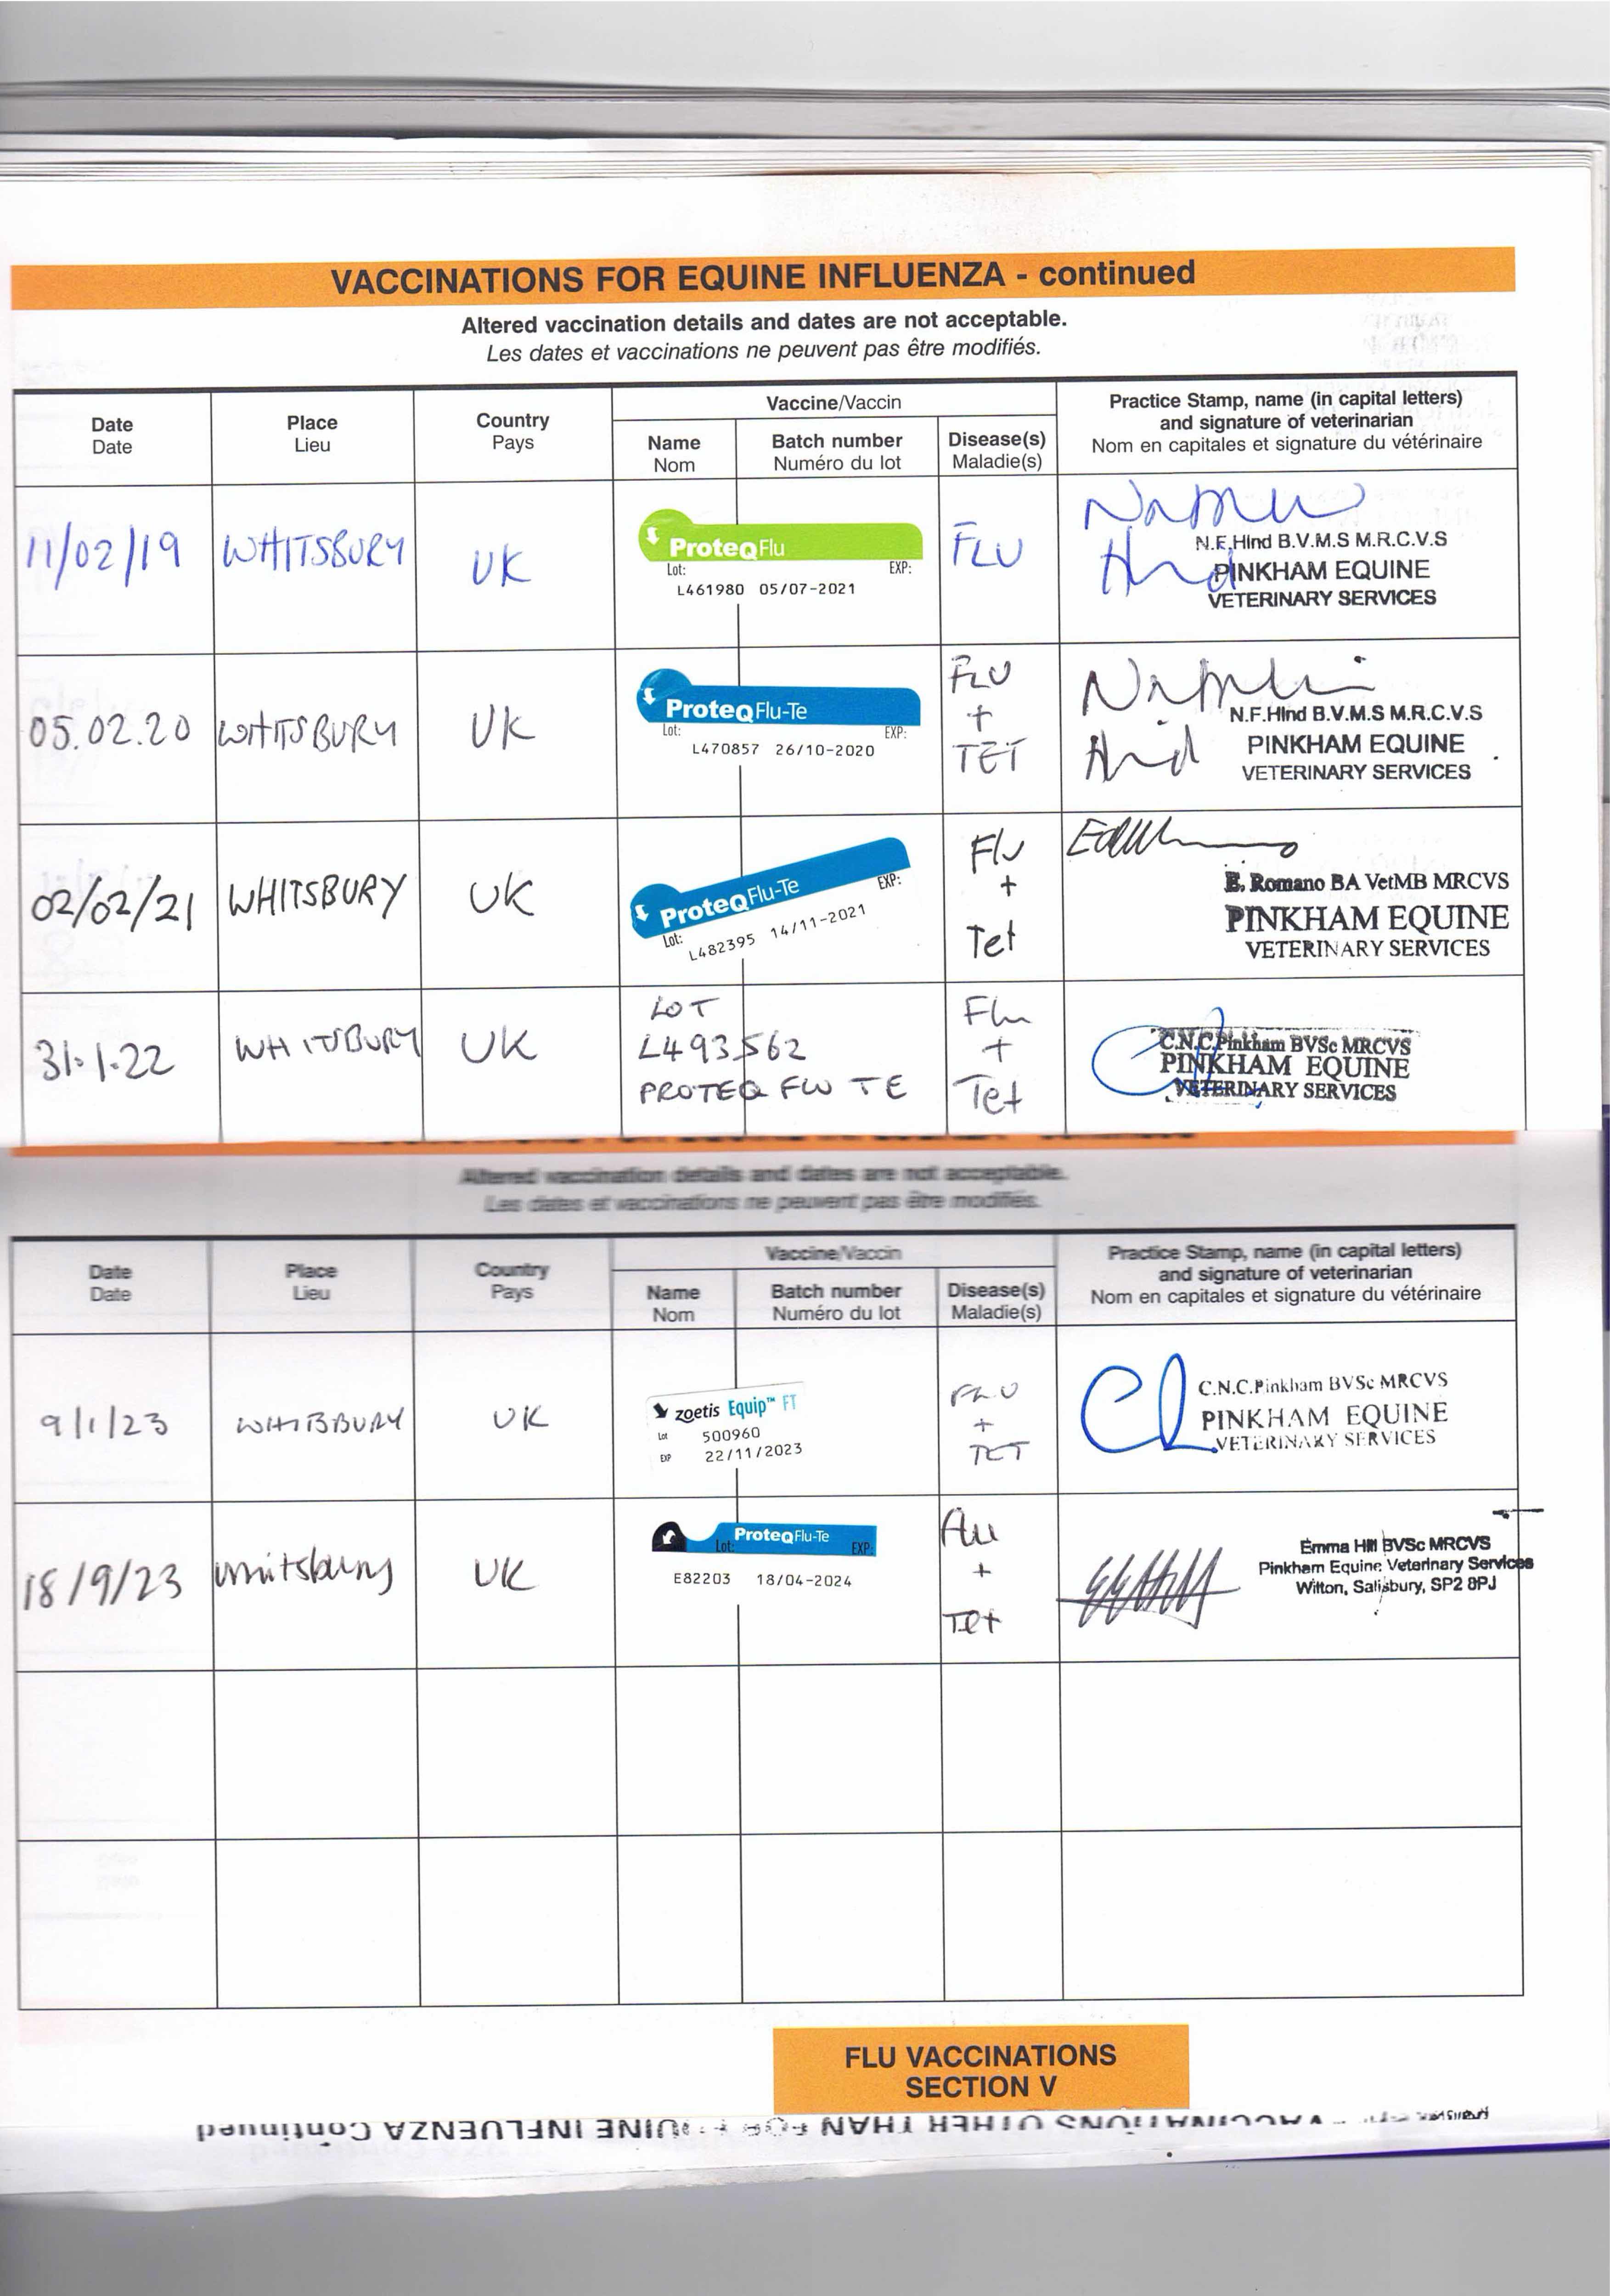 VACCINATIONS FOR EQUINE INFLUENZA - continued
Altered vaccination details and dates are not acceptable.
Les dates et vaccinations ne peuvent pas être modifiés.
Date
Date
Place
Lieu
Country
Pays
Vaccine/Vaccin
Name
Nom
Batch number
Numéro du lot
Disease(s)
Maladie(s)
Practice Stamp, name (in capital letters)
and signature of veterinarian
Nom en capitales et signature du vétérinaire
11/02/19
WHITSBURY
UK
ProteqFlu
Lot: EXP:
L461980 05/07-2021
FLU
N.F.Hind B.V.M.S M.R.C.V.S
PINKHAM EQUINE
VETERINARY SERVICES
05.02.20
WHITSBURY
UK
ProteqFlu-Te
Lot: EXP:
L470857 26/10-2020
FLU
+
TET
N.F.Hind B.V.M.S M.R.C.V.S
PINKHAM EQUINE
VETERINARY SERVICES
02/02/21
WHITSBURY
UK
ProteqFlu-Te
Lot: EXP:
L482395 14/11-2021
Flu
+
Tet
E. Romano BA VetMB MRCVS
PINKHAM EQUINE
VETERINARY SERVICES
31.1.22
WHITSBURY
UK
LOT
L493562
PROTEQ FLU TE
Flu
+
Tet
C.N.C.Pinkham BVSc MRCVS
PINKHAM EQUINE
VETERINARY SERVICES
Altered vaccination details and dates are not acceptable.
Les dates et vaccinations ne peuvent pas être modifiés.
Date
Date
Place
Lieu
Country
Pays
Vaccine/Vaccin
Name
Nom
Batch number
Numéro du lot
Disease(s)
Maladie(s)
Practice Stamp, name (in capital letters)
and signature of veterinarian
Nom en capitales et signature du vétérinaire
9/1/23
WHITSBURY
UK
zoetis Equip™ FT
Lot 500960
EXP 22/11/2023
FLU
+
TET
C.N.C.Pinkham BVSc MRCVS
PINKHAM EQUINE
VETERINARY SERVICES
18/9/23
Whitsbury
UK
ProteqFlu-Te
Lot: EXP:
E82203 18/04-2024
Flu
+
Tet
Emma Hill BVSc MRCVS
Pinkham Equine Veterinary Services
Wilton, Salisbury, SP2 8PJ
FLU VACCINATIONS
SECTION V
VACCINATIONS OTHER THAN FOR EQUINE INFLUENZA Continued